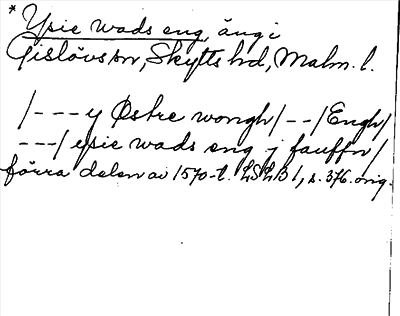 * Ysie wads eng, äng i
Gislövs sn, Skytts hd, Malm. l.
/---y Østre wongh/--/Engh/
---/ysie wads eng j fauffn/
förra delen av 1570-t. LSLB 1, s. 376. orig.